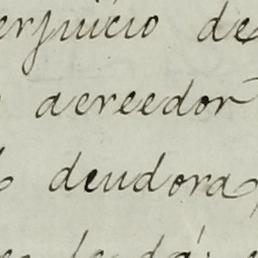 erjuicio de
acreedor
deudora